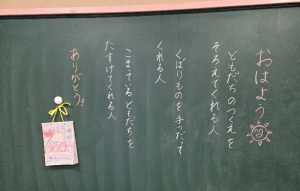 おはよう
ともだちのつくえを
そろえてくれる人
くばりものを手つだって
くれる人
こまっているともだちを
たすけてくれる人
ありがとう。